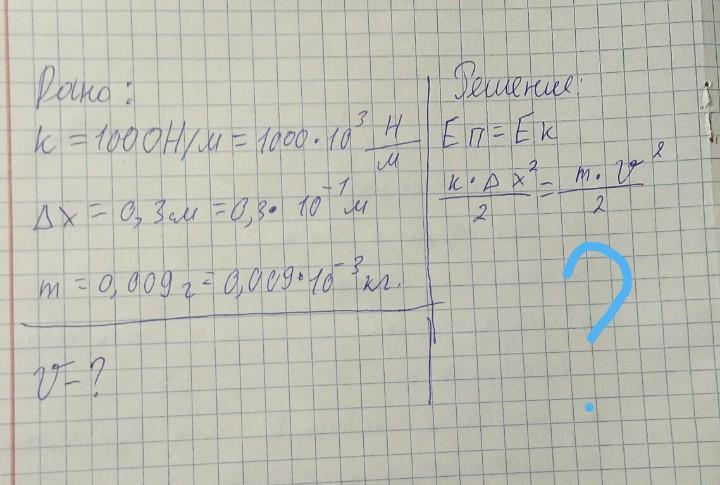 Дано:
k = 1000Н/м = 1000·10³ Н/м
Δx = 0,3см = 0,3· 10⁻¹ м
m = 0,009г = 0,009·10⁻³ кг.
v - ?
Решение:
Eп = Eк
k·Δx²/2 = m·v²/2
?